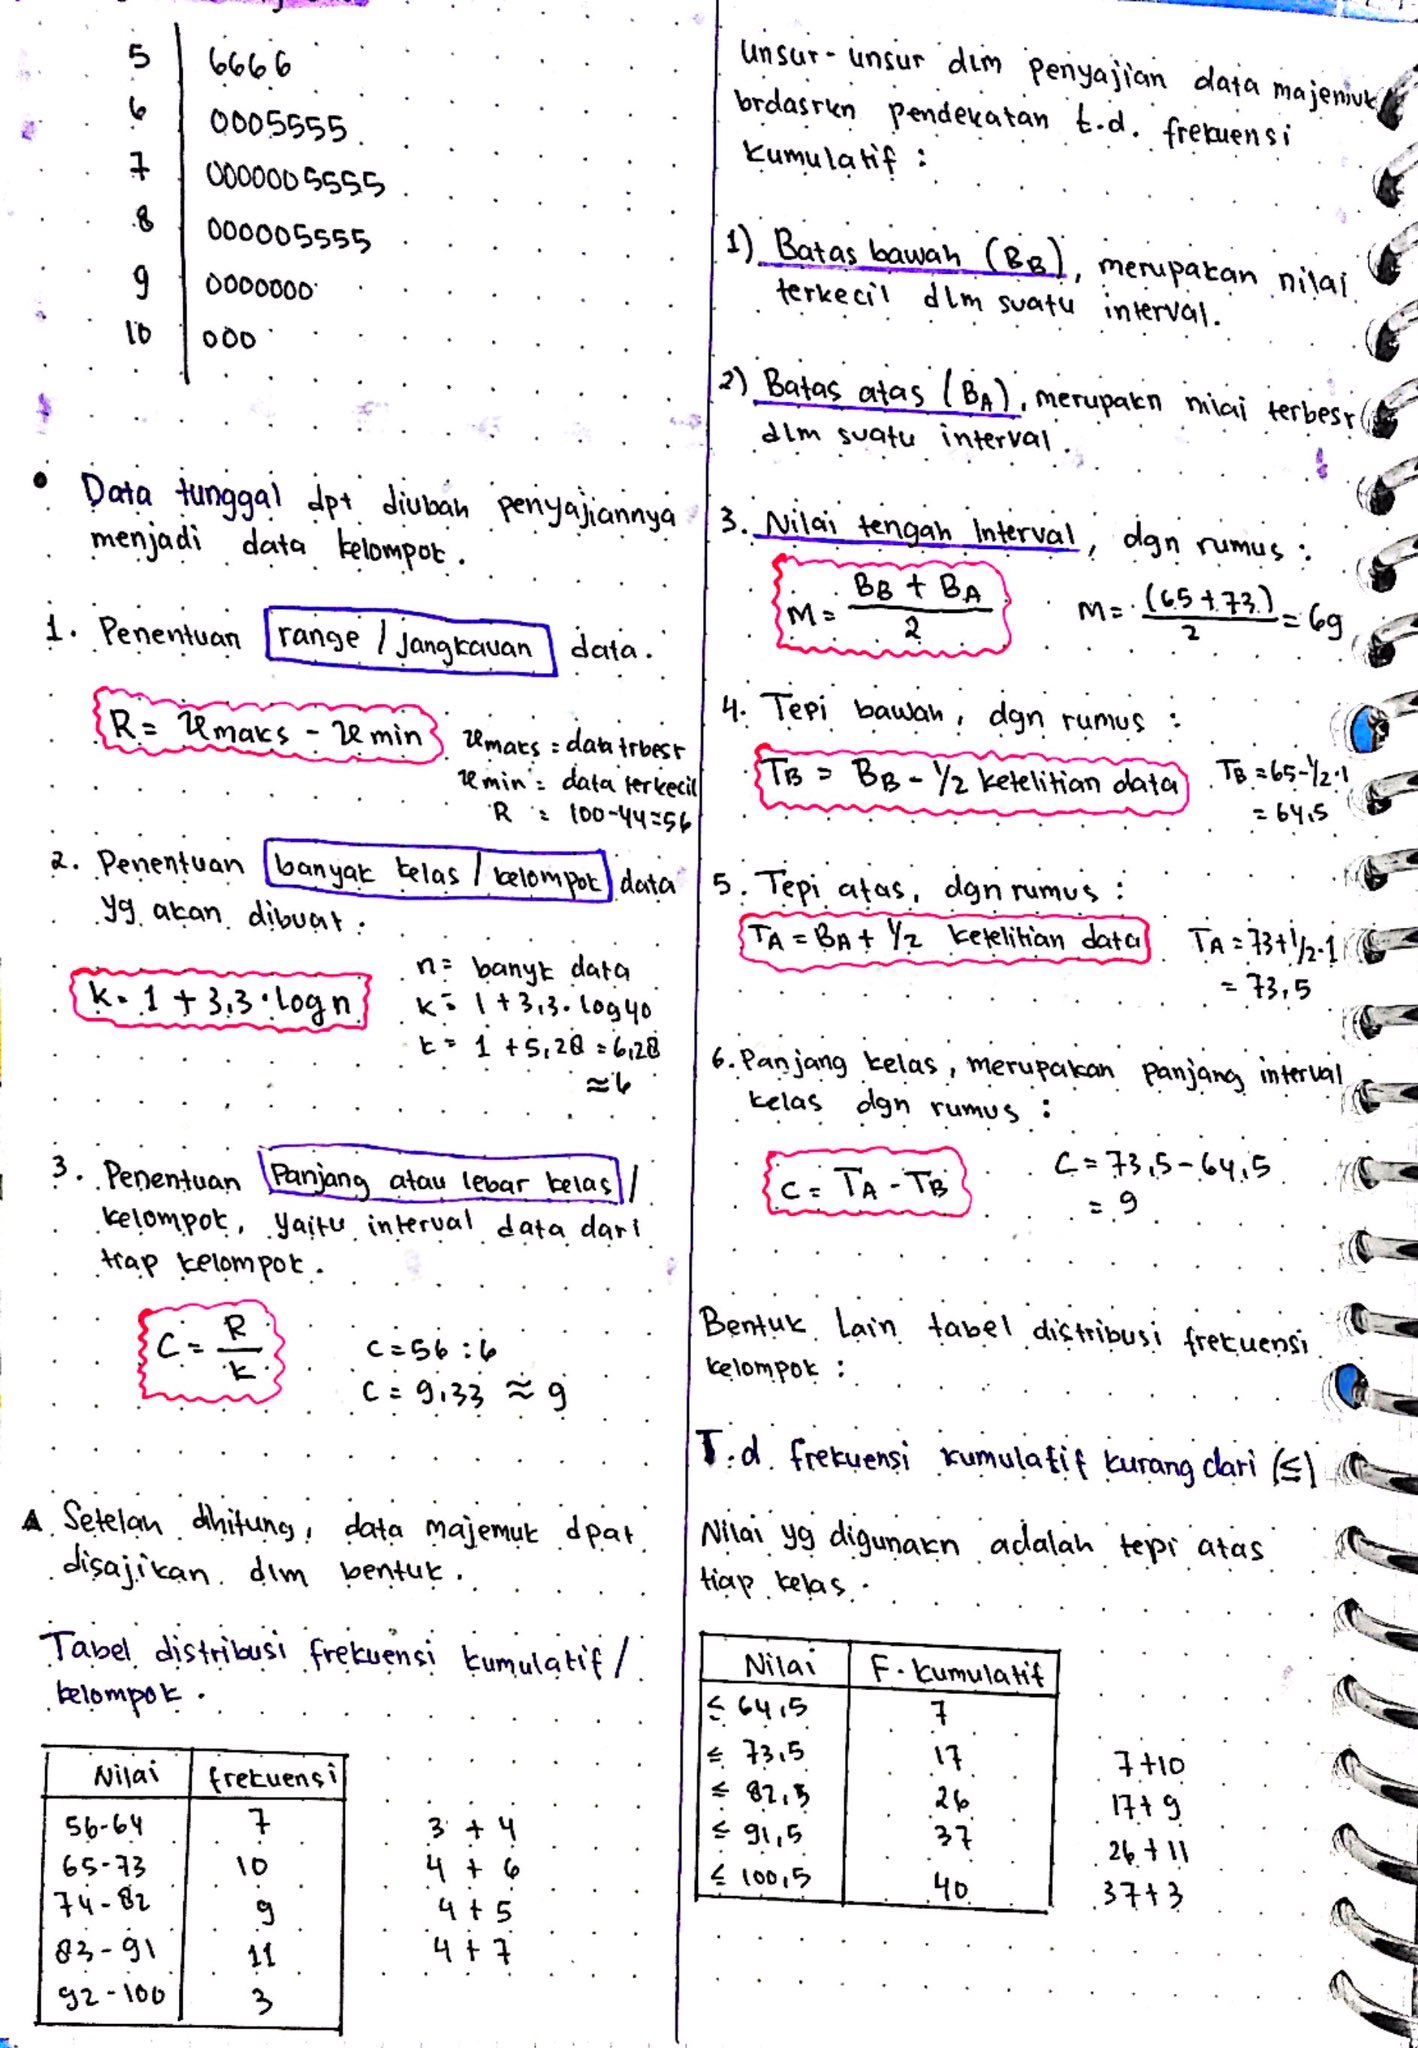 5 | 6666
6 | 0005555
7 | 0000005555
8 | 000005555
9 | 0000000
10 | 000
• Data tunggal dpt diubah penyajiannya
menjadi data kelompok.
1. Penentuan range / jangkauan data.
R = xmaks - xmin
xmaks = data trbesr
xmin = data terkecil
R = 100-44=56
2. Penentuan banyak kelas / kelompok data
yg akan dibuat.
k = 1 + 3,3 · log n
n = banyk data
k = 1 + 3,3 · log 40
k = 1 + 5,28 = 6,28
≈ 6
3. Penentuan Panjang atau lebar kelas /
kelompok, yaitu interval data dari
tiap kelompok.
C = R/k
C = 56 : 6
C = 9,33 ≈ 9
▲ Setelah dihitung, data majemuk dpat
disajikan dlm bentuk.
Tabel distribusi frekuensi kumulatif /
kelompok.
Nilai | frekuensi
56-64 | 7 3 + 4
65-73 | 10 4 + 6
74-82 | 9 4 + 5
83-91 | 11 4 + 7
92-100 | 3
Unsur-unsur dlm penyajian data majemuk
brdasrkn pendekatan t.d. frekuensi
kumulatif :
1) Batas bawah (BB), merupakan nilai
terkecil dlm suatu interval.
2) Batas atas (BA), merupakn nilai terbesr
dlm suatu interval.
3. Nilai tengah Interval, dgn rumus :
M = (BB + BA)/2
M = (65+73)/2 = 69
4. Tepi bawah, dgn rumus :
TB = BB - 1/2 ketelitian data
TB = 65-1/2·1
= 64,5
5. Tepi atas, dgn rumus :
TA = BA + 1/2 ketelitian data
TA = 73+1/2·1
= 73,5
6. Panjang kelas, merupakan panjang interval
kelas dgn rumus :
C = TA - TB
C = 73,5 - 64,5
= 9
Bentuk lain tabel distribusi frekuensi
kelompok :
T.d. frekuensi kumulatif kurang dari (≤)
Nilai yg digunakn adalah tepi atas
tiap kelas.
Nilai | F. kumulatif
≤ 64,5 | 7
≤ 73,5 | 17 7+10
≤ 82,5 | 26 17+9
≤ 91,5 | 37 26+11
≤ 100,5 | 40 37+3